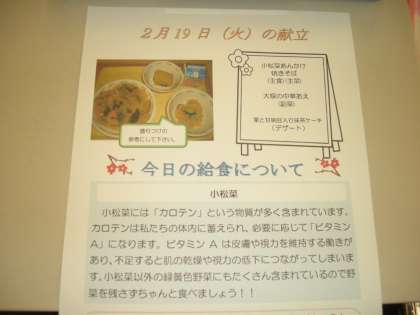 2月19日（火）の献立
小松菜あんかけ
焼きそば
(主食)(主菜)
大根の中華あえ
(副菜)
栗と甘納豆入り抹茶ケーキ
(デザート)
盛りつけの
参考にして下さい。
今日の給食について
小松菜
小松菜には「カロテン」という物質が多く含まれています。
カロテンは私たちの体内に蓄えられ、必要に応じて「ビタミン
A」になります。ビタミン A は皮膚や視力を維持する働きがあ
り、不足すると肌の乾燥や視力の低下につながってしまいま
す。小松菜以外の緑黄色野菜にもたくさん含まれているので野
菜を残さずちゃんと食べましょう！！